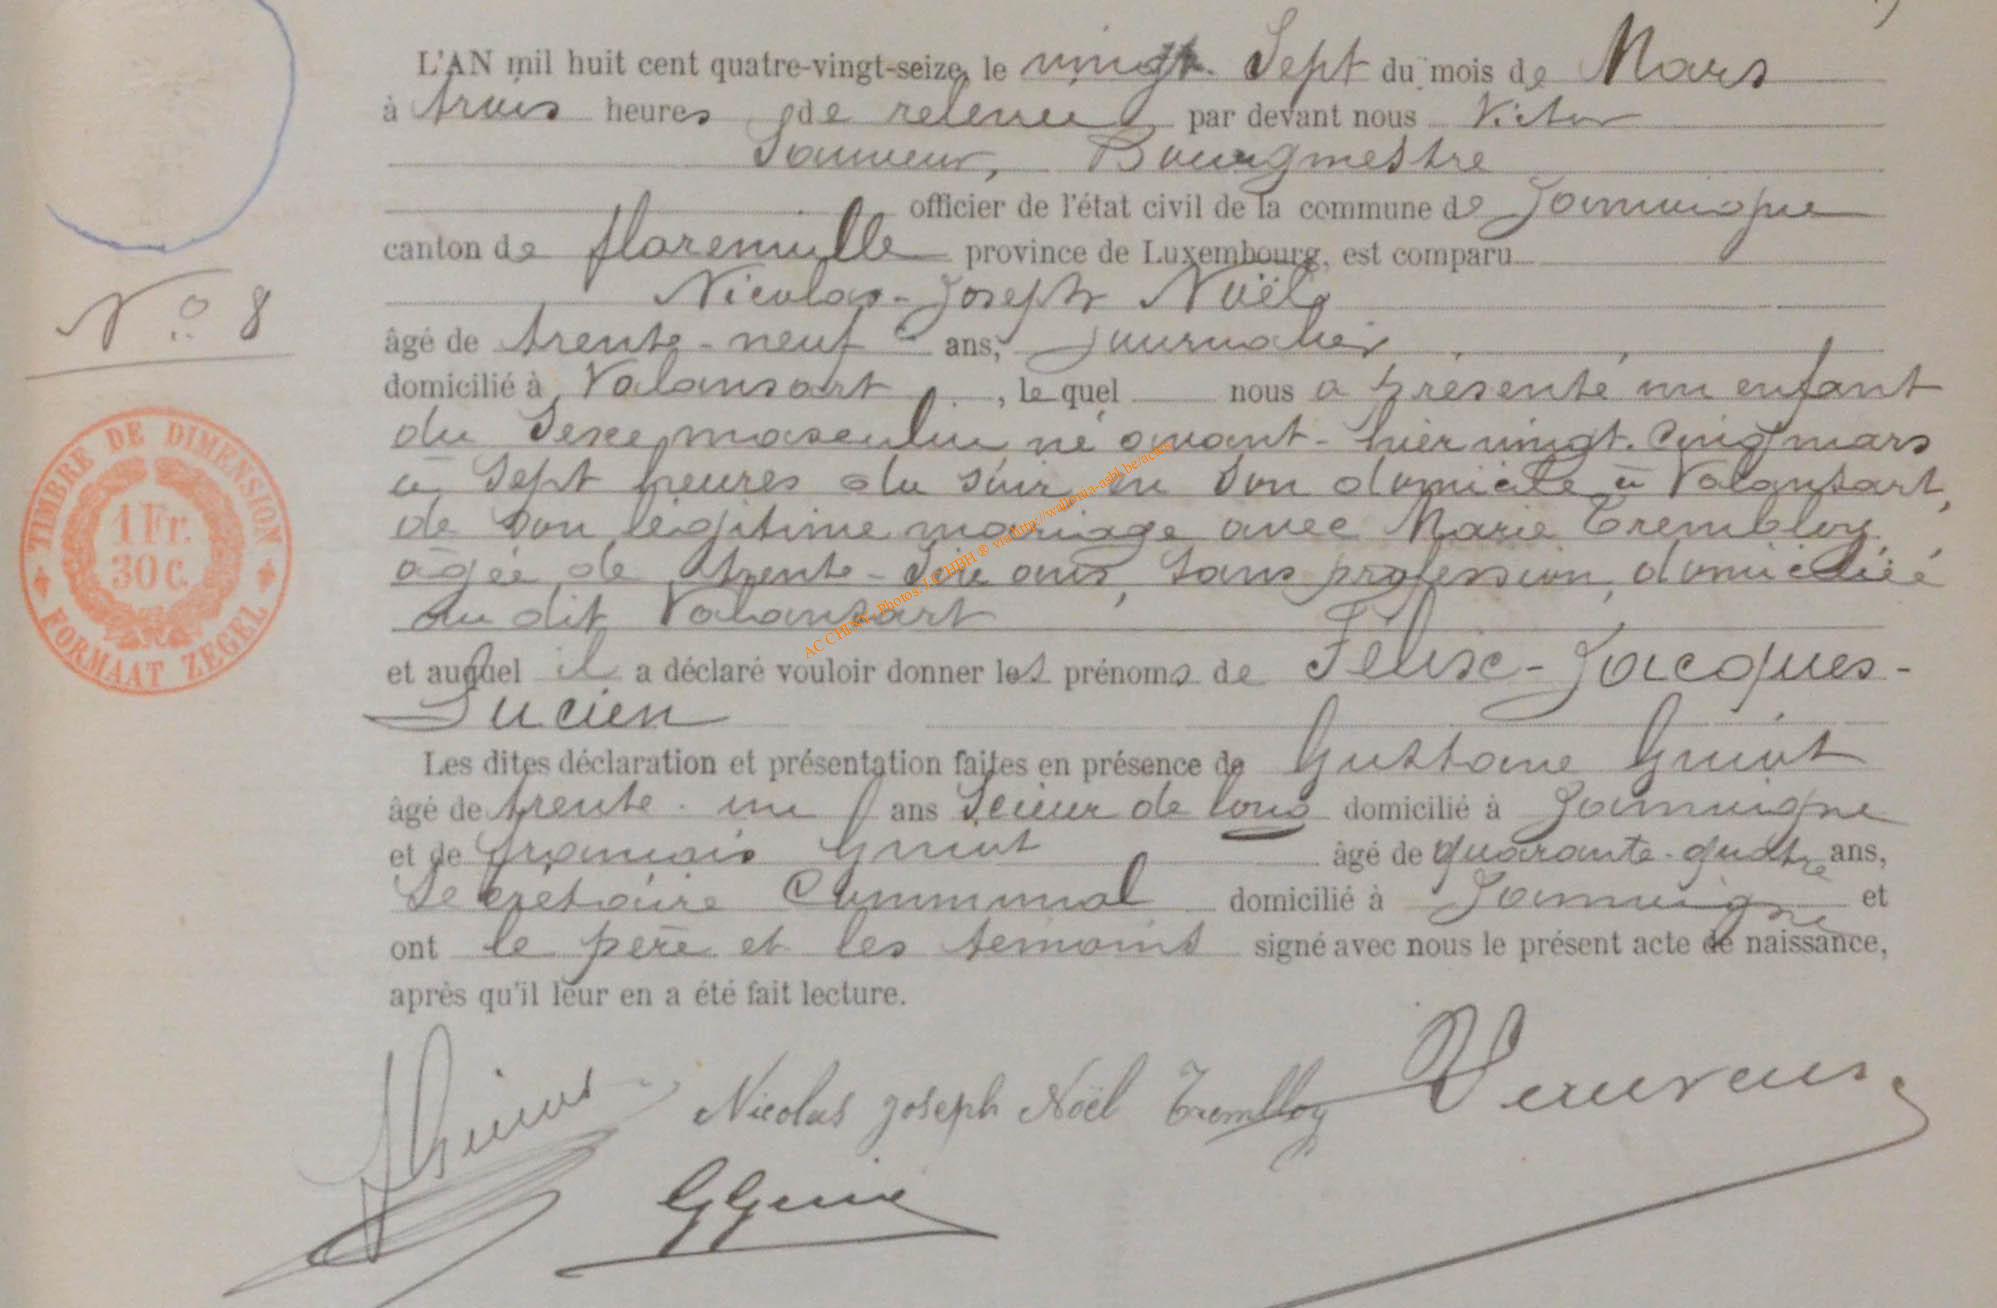 L'AN mil huit cent quatre-vingt-seize, le vingt-Sept du mois de Mars
à trois heures de relevée par devant nous Victor
Sauveur, Bourgmestre
officier de l'état civil de la commune de Jamoigne
canton de florenville province de Luxembourg, est comparu
Nicolas-Joseph Noël
N° 8
âgé de trente-neuf ans, journalier
domicilié à Valansart, le quel nous a présenté un enfant
du Sexe masculin né avant-hier vingt-cinq mars
à Sept heures du soir en son domicile à Valansart,
de son légitime mariage avec Marie Trembloy,
âgée de trente-Six ans, sans profession, domiciliée
au dit Valansart
et auquel il a déclaré vouloir donner les prénoms de Félix-Jacques-
Lucien
Les dites déclaration et présentation faites en présence de Gustave Guiot
âgé de trente-un ans Scieur de long domicilié à Jamoigne
et de françois Guiot âgé de quarante-quatre ans,
Secrétaire Communal domicilié à Jamoigne et
ont le père et les témoins signé avec nous le présent acte de naissance,
après qu'il leur en a été fait lecture.
Nicolas joseph Noël Trembloy
TIMBRE DE DIMENSION
1 Fr.
30 c.
FORMAAT ZEGEL